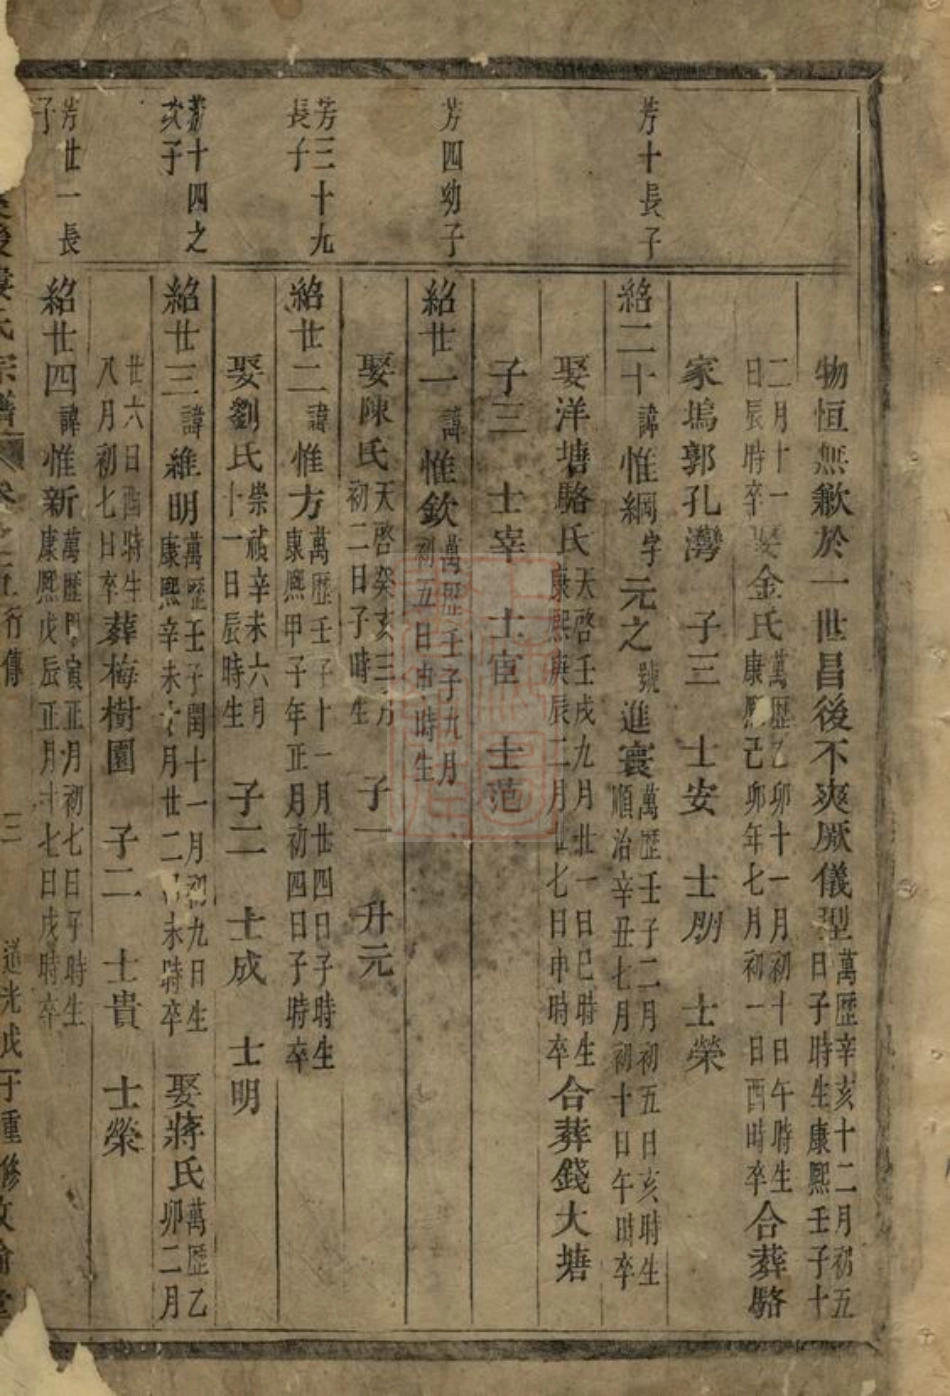 物恒無歉於一世昌後不爽厥儀型萬歷辛亥十二月初五日子時生康熙壬子十
二月十一日辰時卒 娶金氏萬歷乙卯十一月初十日午時生康熙己卯年七月初一日酉時卒合葬駱
家塢郭孔灣 子三 士安 士朋 士榮
芳十長子
紹二十諱惟綱字元之號進寰萬歷壬子二月初五日亥時生順治辛丑七月初十日午時卒
娶洋塘駱氏天啓壬戌九月廿一日巳時生康熙庚辰二月廿七日申時卒合葬錢大塘
子三 士宰 士宦 士范
芳四幼子
紹廿一諱惟欽萬歷壬子九月初五日申時生
娶陳氏天啓癸亥三月初二日子時生 子一 升元
芳三十九長子
紹廿二諱惟方萬歷壬子十一月廿四日子時生康熙甲子年正月初四日子時卒
娶劉氏崇禎辛未六月十一日辰時生 子二 士成 士明
芳十四之次子
紹廿三諱維明萬歷壬子閏十一月初九日生康熙辛未十月廿二日未時卒 娶蔣氏萬歷乙卯二月
廿六日酉時生八月初七日卒葬梅樹園 子二 士貴 士榮
芳廿一長子
紹廿四諱惟新萬歷寅正月初七日午時生康熙戊辰正月十七日戌時卒
氏宗譜 卷之五行傳 三 道光戊子重修